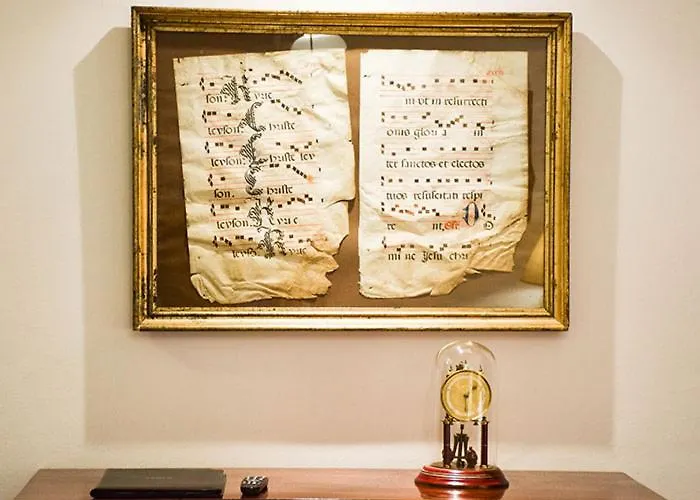 son. Kyrie
leyson. Christe
leyson. Christe ley
son. Christe
leyson. Kyrie
leyson. Kyrie
m vt in resurrecti
onis gloria in
ter sanctos et electos
tuos resuscitati respi
rent. Off. D
mi ne Jesu chris